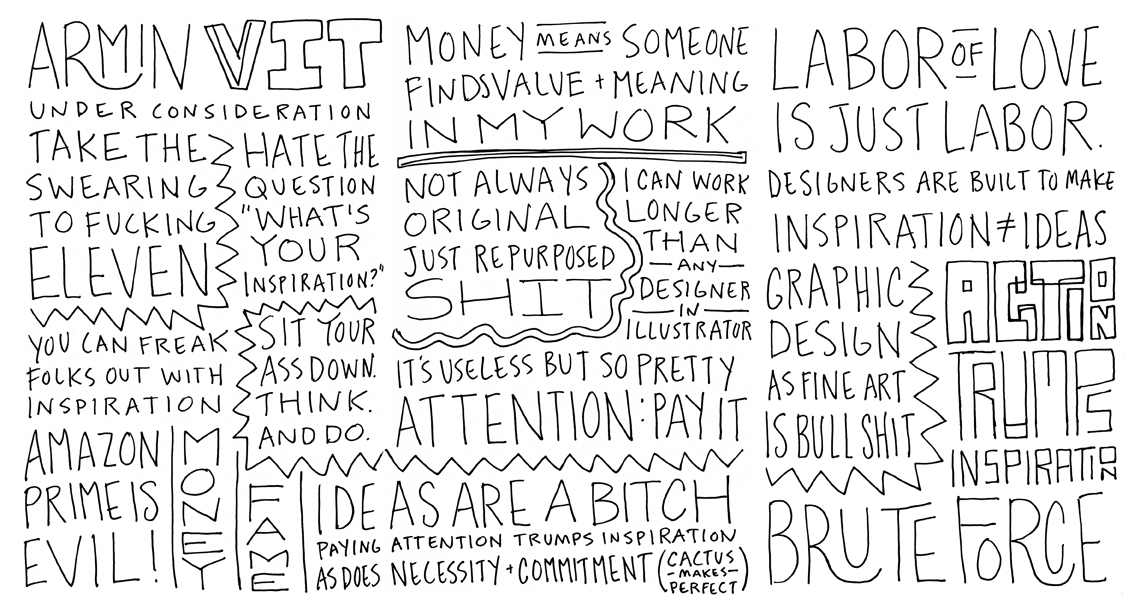 ARMIN VIT
UNDER CONSIDERATION
TAKE THE
SWEARING
TO FUCKING
ELEVEN
HATE THE
QUESTION
"WHAT'S
YOUR
INSPIRATION?"
YOU CAN FREAK
FOLKS OUT WITH
INSPIRATION
SIT YOUR
ASS DOWN.
THINK.
AND DO.
AMAZON
PRIME IS
EVIL!
MONEY
FAME
MONEY MEANS SOMEONE
FINDS VALUE + MEANING
IN MY WORK
NOT ALWAYS
ORIGINAL
JUST REPURPOSED
SHIT
I CAN WORK
LONGER
THAN
-ANY-
DESIGNER
-IN-
ILLUSTRATOR
IT'S USELESS BUT SO PRETTY
ATTENTION: PAY IT
IDEAS ARE A BITCH
PAYING ATTENTION TRUMPS INSPIRATION
AS DOES NECESSITY + COMMITMENT
(CACTUS
-MAKES-
PERFECT)
LABOR OF LOVE
IS JUST LABOR.
DESIGNERS ARE BUILT TO MAKE
INSPIRATION ≠ IDEAS
GRAPHIC
DESIGN
AS FINE ART
IS BULL SHIT
ACTION
TRUMPS
INSPIRATION
BRUTE FORCE